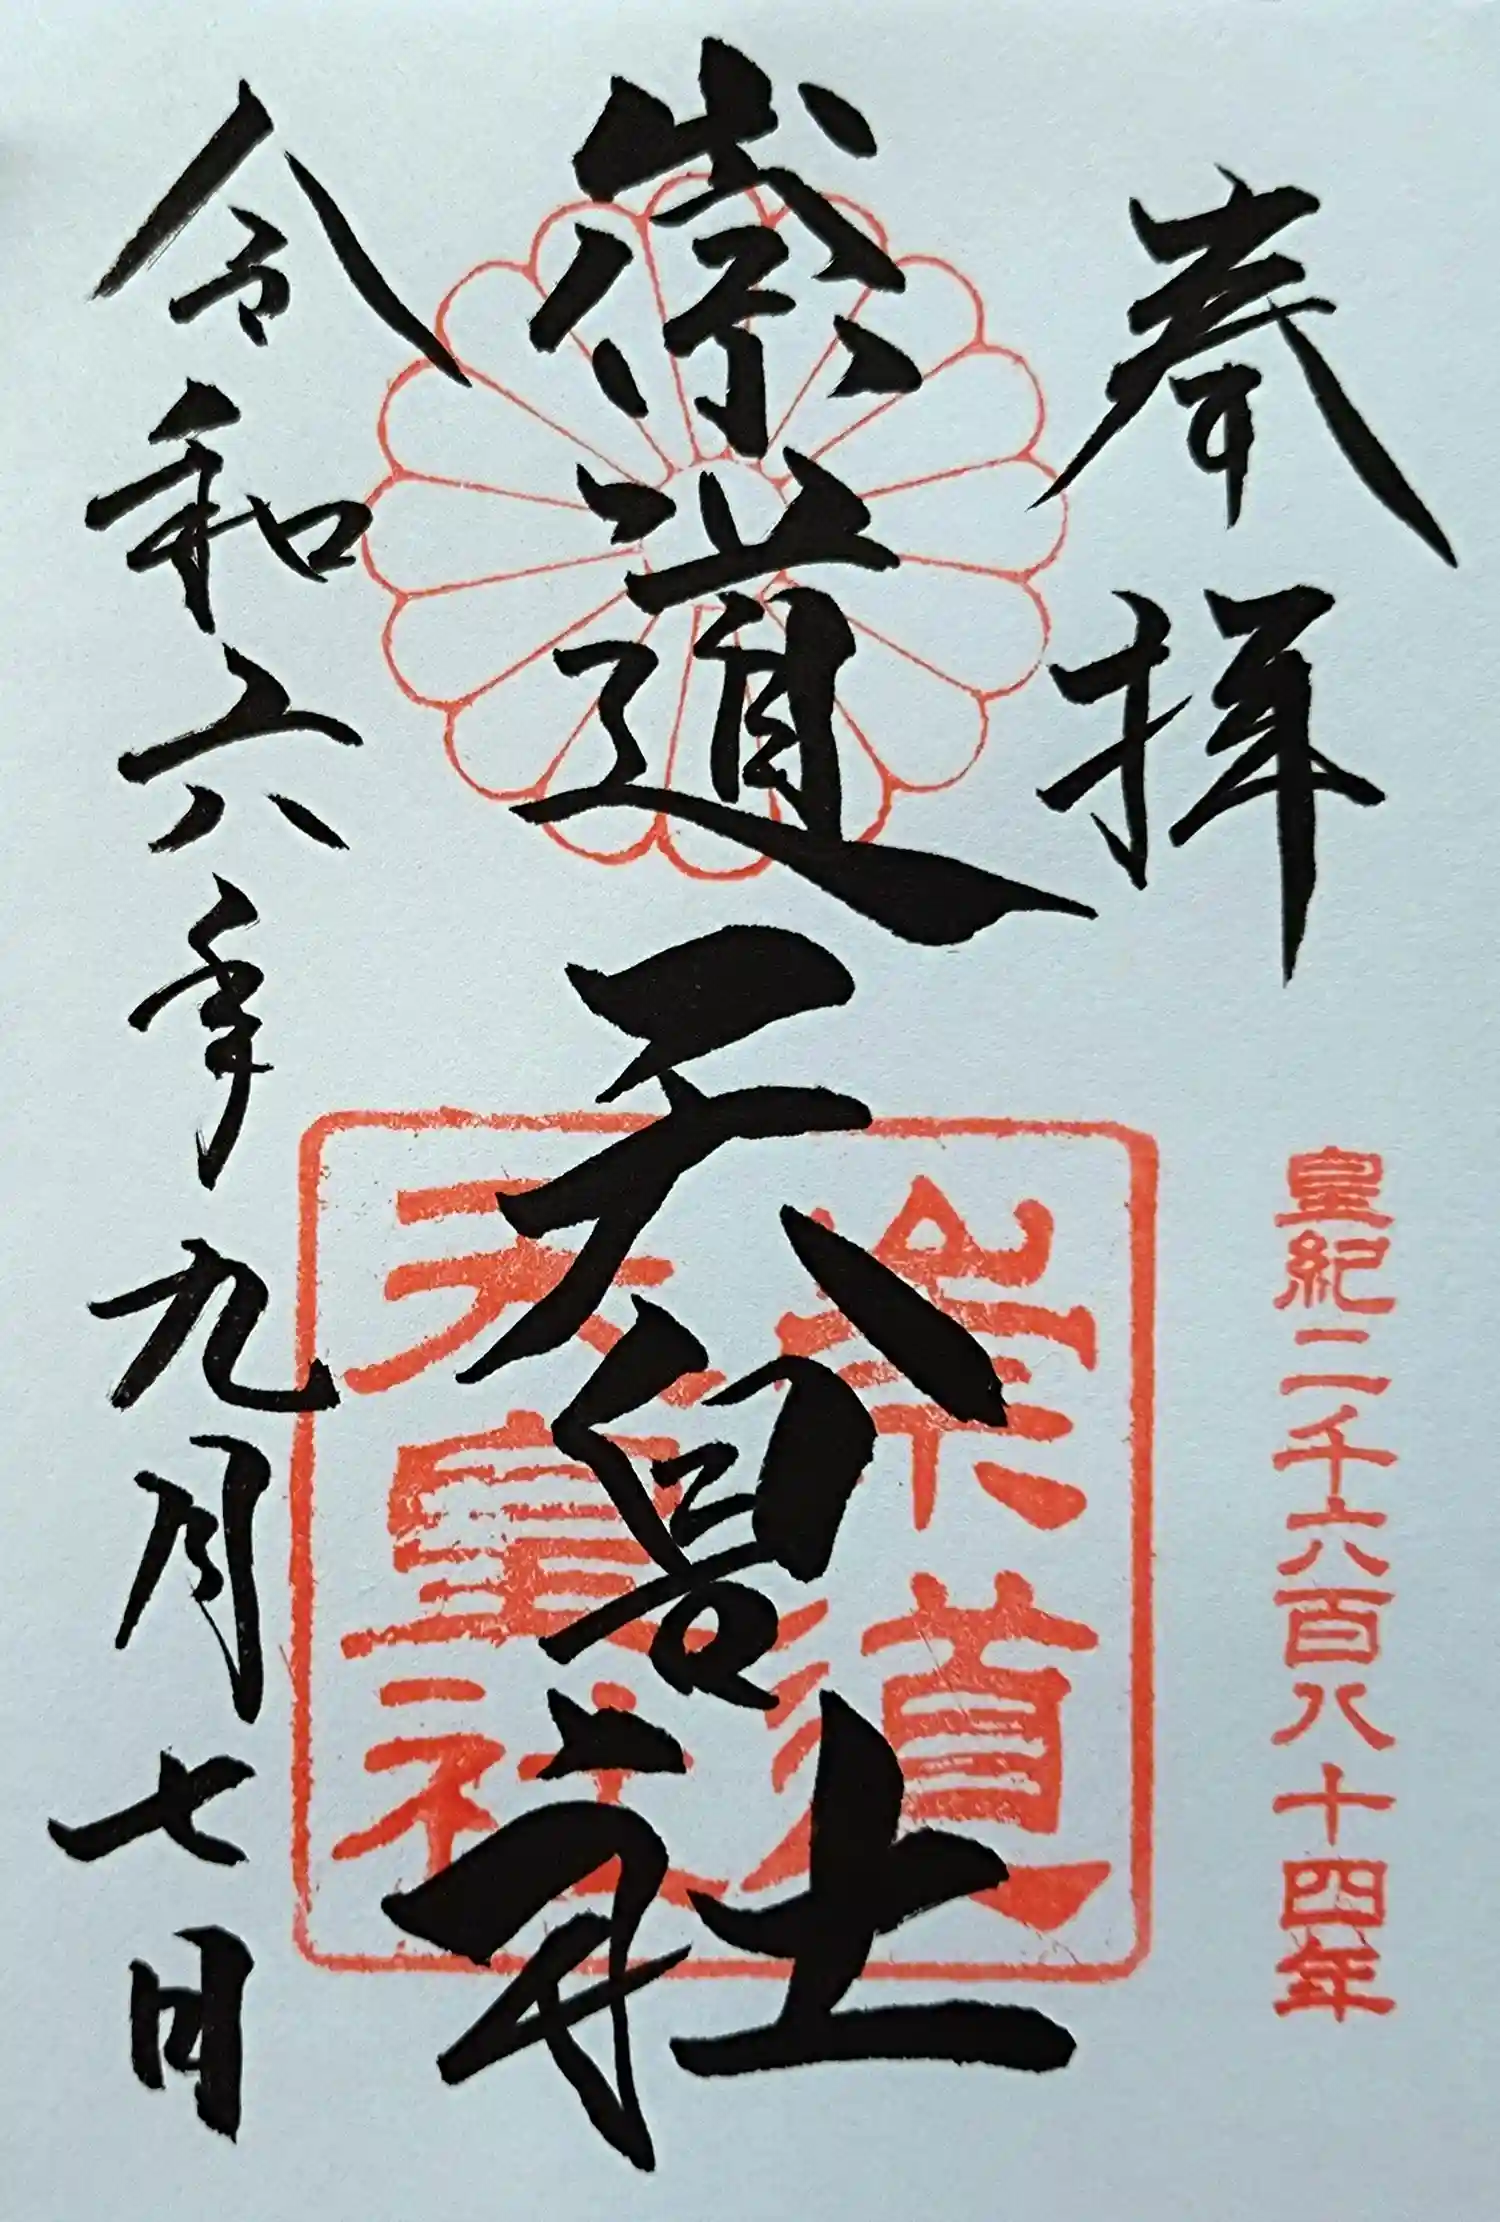 奉拝
皇紀二千六百八十四年
崇道天皇社
崇道
天皇社
令和六年九月七日